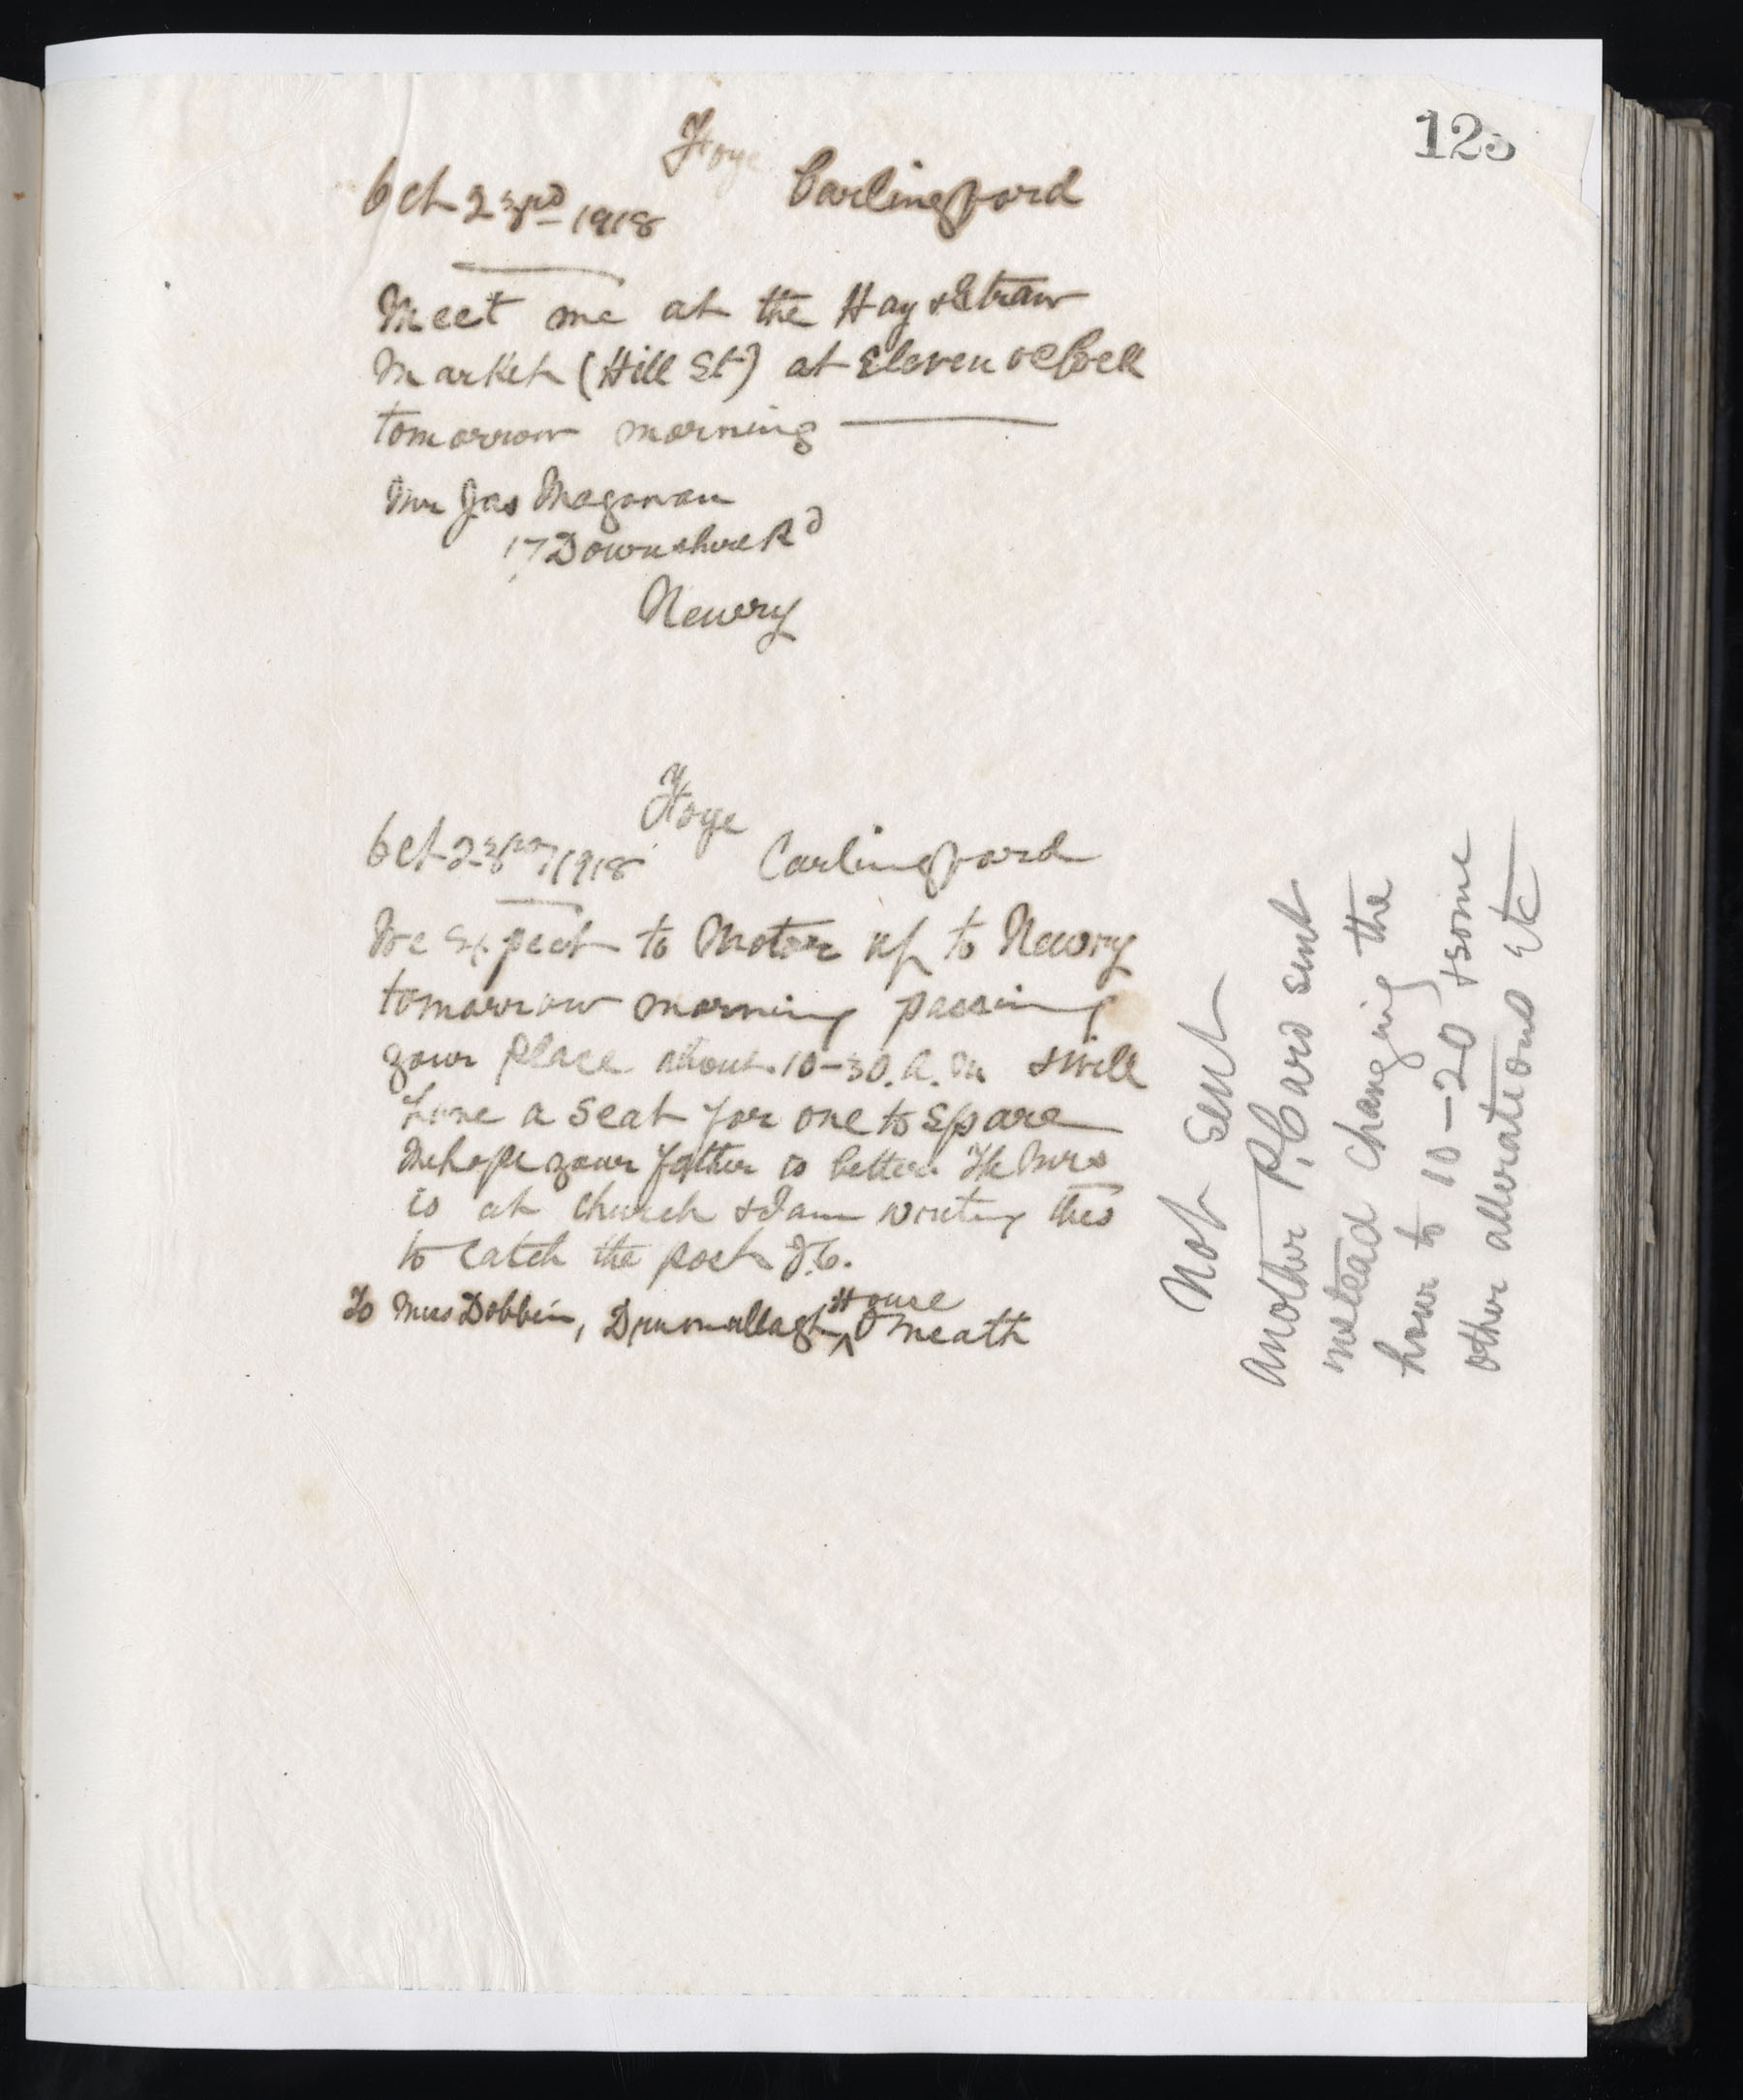 123
Foye
Oct 23rd 1918 Carlingford
Meet me at the Hay & Straw
Market (Hill St) at Eleven oClock
tomorrow morning
Mr Jas Magowan
17 Downshire Rd
Newry
Foye
Oct 23rd 1918 Carlingford
We Expect to Motor up to Newry
tomorrow morning passing
your place about 10-30. A. M & will
have a seat for one to spare
We hope your father is better. The Mrs
is at church & I am writing this
to catch the post
To Miss Dobbin, Drummullagh House Omeath
Not Sent
Another P. Card sent
instead changing the
hour to 10-20 & some
other alterations Etc